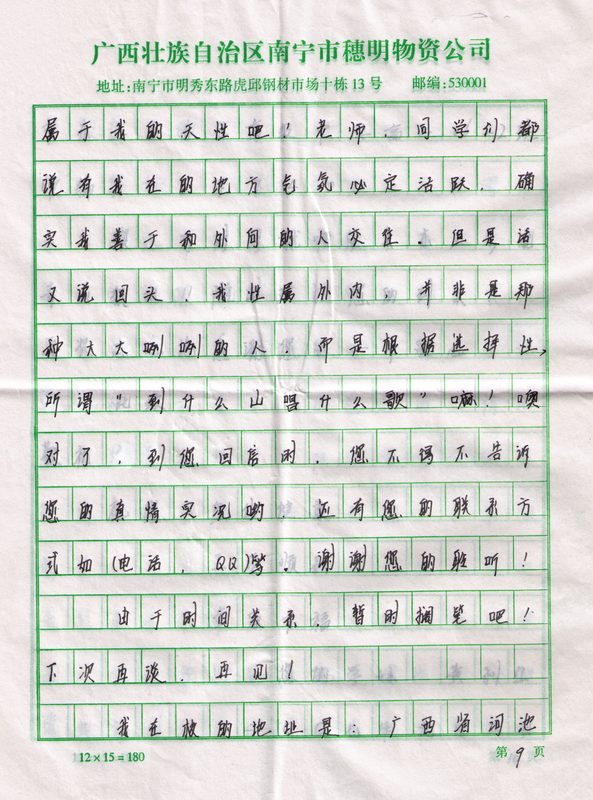 广西壮族自治区南宁市穗明物资公司
地址:南宁市明秀东路虎邱钢材市场十栋13号 邮编:530001
属于我的天性吧!老师、同学们都
说有我在的地方气氛必定活跃。确
实我善于和外间的人交往。但是话
又说回头,我性属外内,并非是那
种大大咧咧的人。而是根据选择性,
所谓“到什么山唱什么歌”嘛!噢
对了,到您回信时,您不得不告诉
您的真情实况哟!还有您的联系方
式如(电话,QQ)等。谢谢您的聆听!
由于时间关系 暂时搁笔吧!
下次再谈。再见!
我在校的地址是:广西省河池
12×15=180
第9页